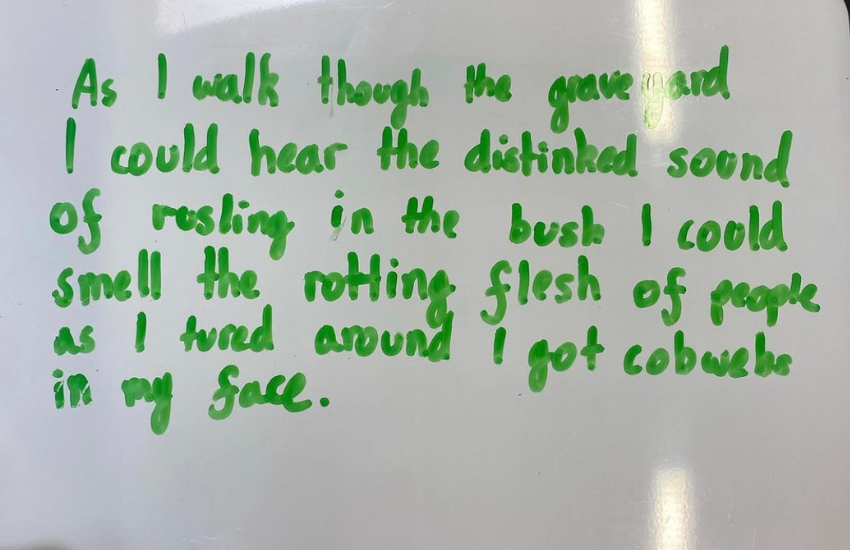 As I walk though the graveyard
I could hear the distinked sound
of rusling in the bush I could
smell the rotting flesh of people
as I tured around I got cobwebs
in my face.